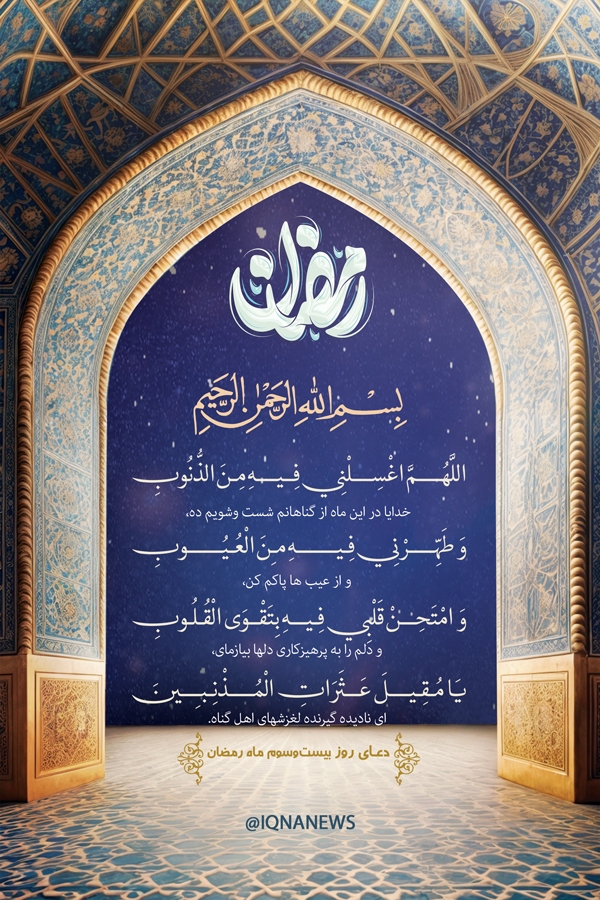 رمضان
بِسْمِ اللهِ الرَّحْمٰنِ الرَّحِيمِ
اللَّهُمَّ اغْسِلْنِي فِيهِ مِنَ الذُّنُوبِ
خدایا در این ماه از گناهانم شست وشویم ده،
وَ طَهِّرْنِي فِيهِ مِنَ الْعُيُوبِ
و از عیب ها پاکم کن،
وَ امْتَحِنْ قَلْبِي فِيهِ بِتَقْوَى الْقُلُوبِ
و دلم را به پرهیزکاری دلها بیازمای،
يَا مُقِيلَ عَثَرَاتِ الْمُذْنِبِينَ
ای نادیده گیرنده لغزشهای اهل گناه.
دعای روز بیست‌وسوم ماه رمضان
@IQNANEWS